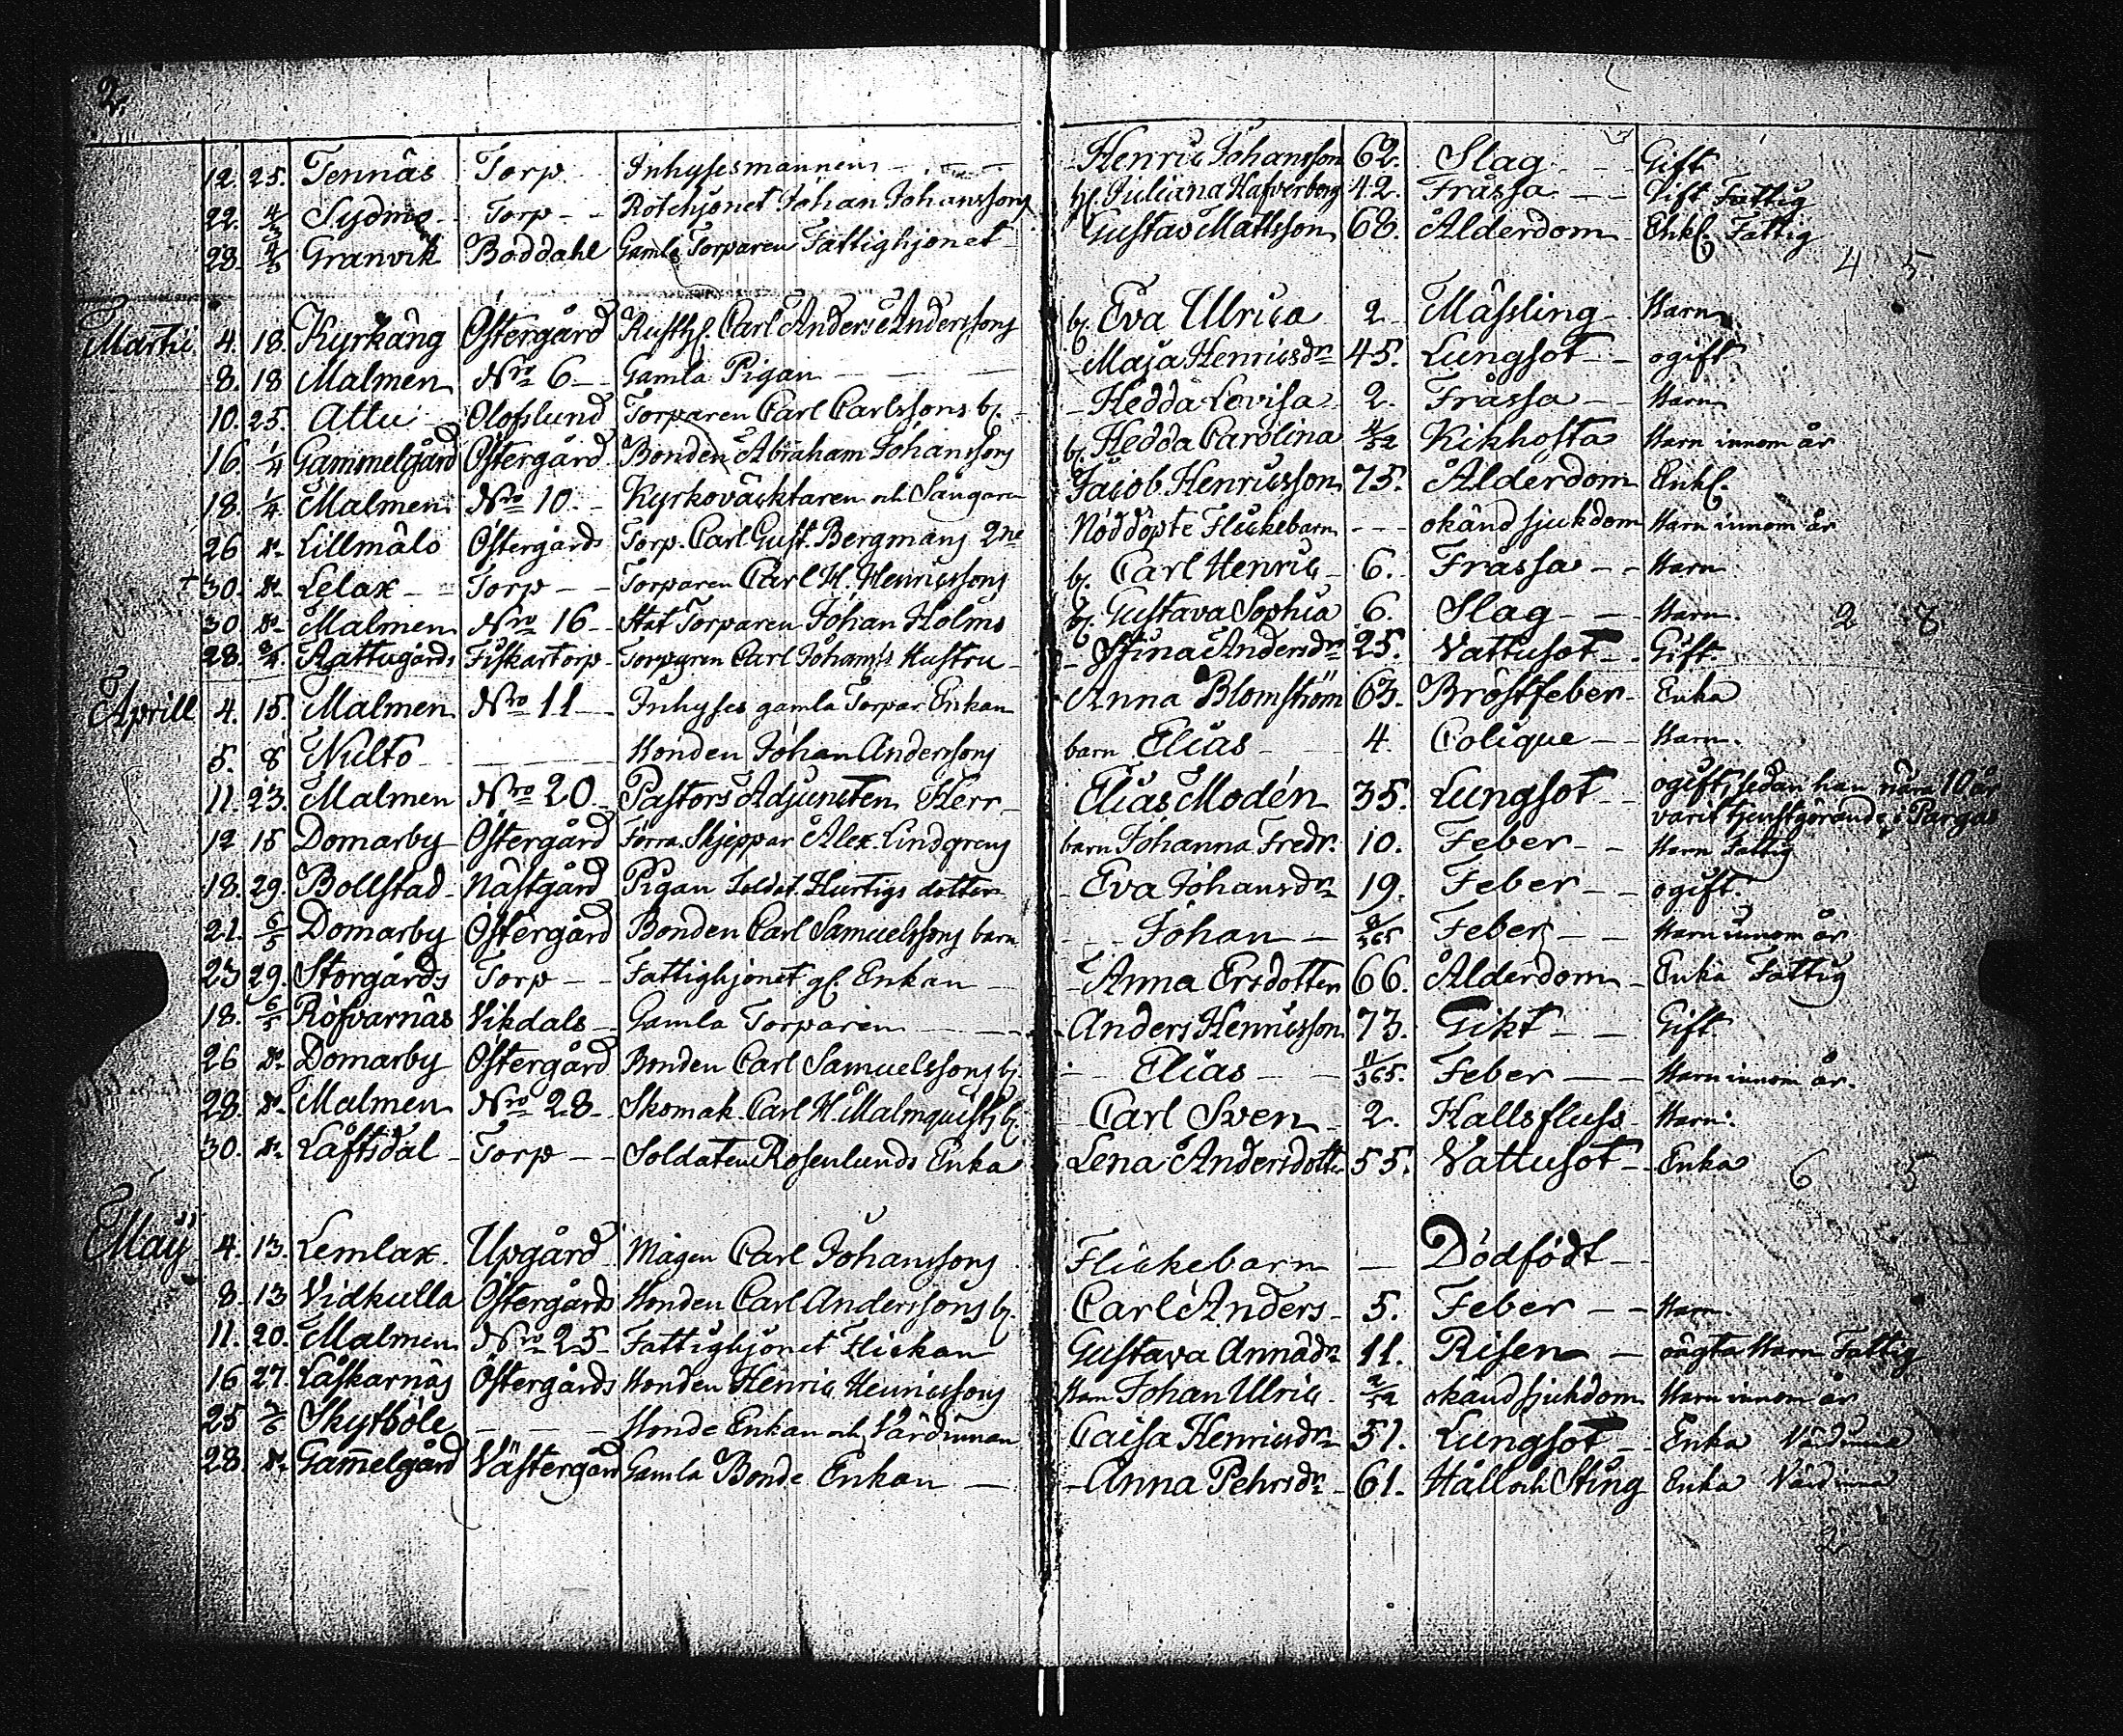 2.
12. 25. Tennäs Torp Inhysesmannen Henric Johansson 62. Slag Gift
22. 4/3 Sydmo Torp Rotehjonet Johan Johanssons h. Juliana Hafverberg 42. Frassa Gift Fattig
28. 4/3 Granvik Boddahl Gamla Torparen Fattighjonet Gustav Mattsson 68. Ålderdom Enkl. Fattig
4 5
Martii 4. 18. Kyrkäng Östergård Rusth. Carl Anders Anderssons b. Eva Ulrica 2 Mässling Barn
8. 18 Malmen Nro 6 Gamla Pigan Maja Henricsdr 45. Lungsot ogift
10. 25. Attu Olofslund Torparen Carl Carlssons b. Hedda Lovisa 2. Frassa Barn
16. 1/4 Gammelgård Östergård Bonden Abraham Johanssons b. Hedda Carolina 4/52 Kikhosta Barn innom år
18. 1/4 Malmen Nro 10 Kyrkoväcktaren och Sångaren Jacob Henricsson 75. Ålderdom Enkl.
26 do Lillmälö Östergårds Torp. Carl Gust. Bergmans 2ne Nöddöpte Flickebarn okänd sjukdom Barn innom år
+ 30. do Lelax Torp Torparen Carl H. Henricssons b. Carl Henric 6. Frassa Barn
30. do Malmen Nro 16 Stat Torparen Johan Holms b. Gustava Sophia 6. Slag Barn 2 8
28. 2/4 Aattugårds Fiskartorp Torparen Carl Johans's Hustru Stina Andersdr 25. Vattusot Gift
Aprill 4. 15. Malmen Nro 11 Inhyses gamla Torpar Enkan Anna Blomström 63. Bröstfeber Enka
5. 8 Nulto Bonden Johan Anderssons barn Elias 4. Colique Barn
11. 23. Malmen Nro 20 Pastors Adjuncten Herr Elias Modén 35. Lungsot ogift, sedan han nära 10 år
varit tjenstgörande i Pargas
12 15 Domarby Östergård Förra Skjeppar Alex. Lindgrens barn Johanna Fredr. 10. Feber Barn Fattig
18. 29. Bollstad Nästgård Pigan Soldat. Hurtigs dotter Eva Johansdr 19. Feber ogift
21. 6/5 Domarby Östergård Bonden Carl Samuelssons barn Johan /365 Feber Barn innom år
23 29. Storgårds Torp Fattighjonet gl. Enkan Anna Ersdotter 66. Ålderdom Enka Fattig
18. 6/5 Röfvarnäs Vikdals Gamla Torparen Anders Henricsson 73. Gikt Gift
26 do Domarby Östergård Bonden Carl Samuelssons b. Elias 11/365. Feber Barn innom år.
28. do Malmen Nro 28 Skomak. Carl H. Malmquists b. Carl Sven 2. Hallsfluss Barn.
30. do Låftsdal Torp Soldaten Rosenlunds Enka Lena Andersdotter 55. Vattusot Enka 6 5
Maij 4. 13. Lemlax Upgård Mågen Carl Johanssons Flickebarn Dödfödt
8. 13 Vidkulla Östergårds Bonden Carl Anderssons b. Carl Anders 5. Feber Barn
11. 20. Malmen Nro 25 Fattighjonet Flickan Gustava Annädr 11. Risen oägta Barn Fattig
16 27. Låskarnäs Östergårds Bonden Henric Henricssons Barn Johan Ulric 2/52 okänd sjukdom Barn innom år
25 3/6 Skytböle Bonde Enkan och Värdinnan Caisa Henricsdr 51. Lungsot Enka Värdinna
28. do Gammelgård Västergård Gamla Bonde Enkan Anna Pehrsdr 61. Håll och Sting Enka Värdinna
2